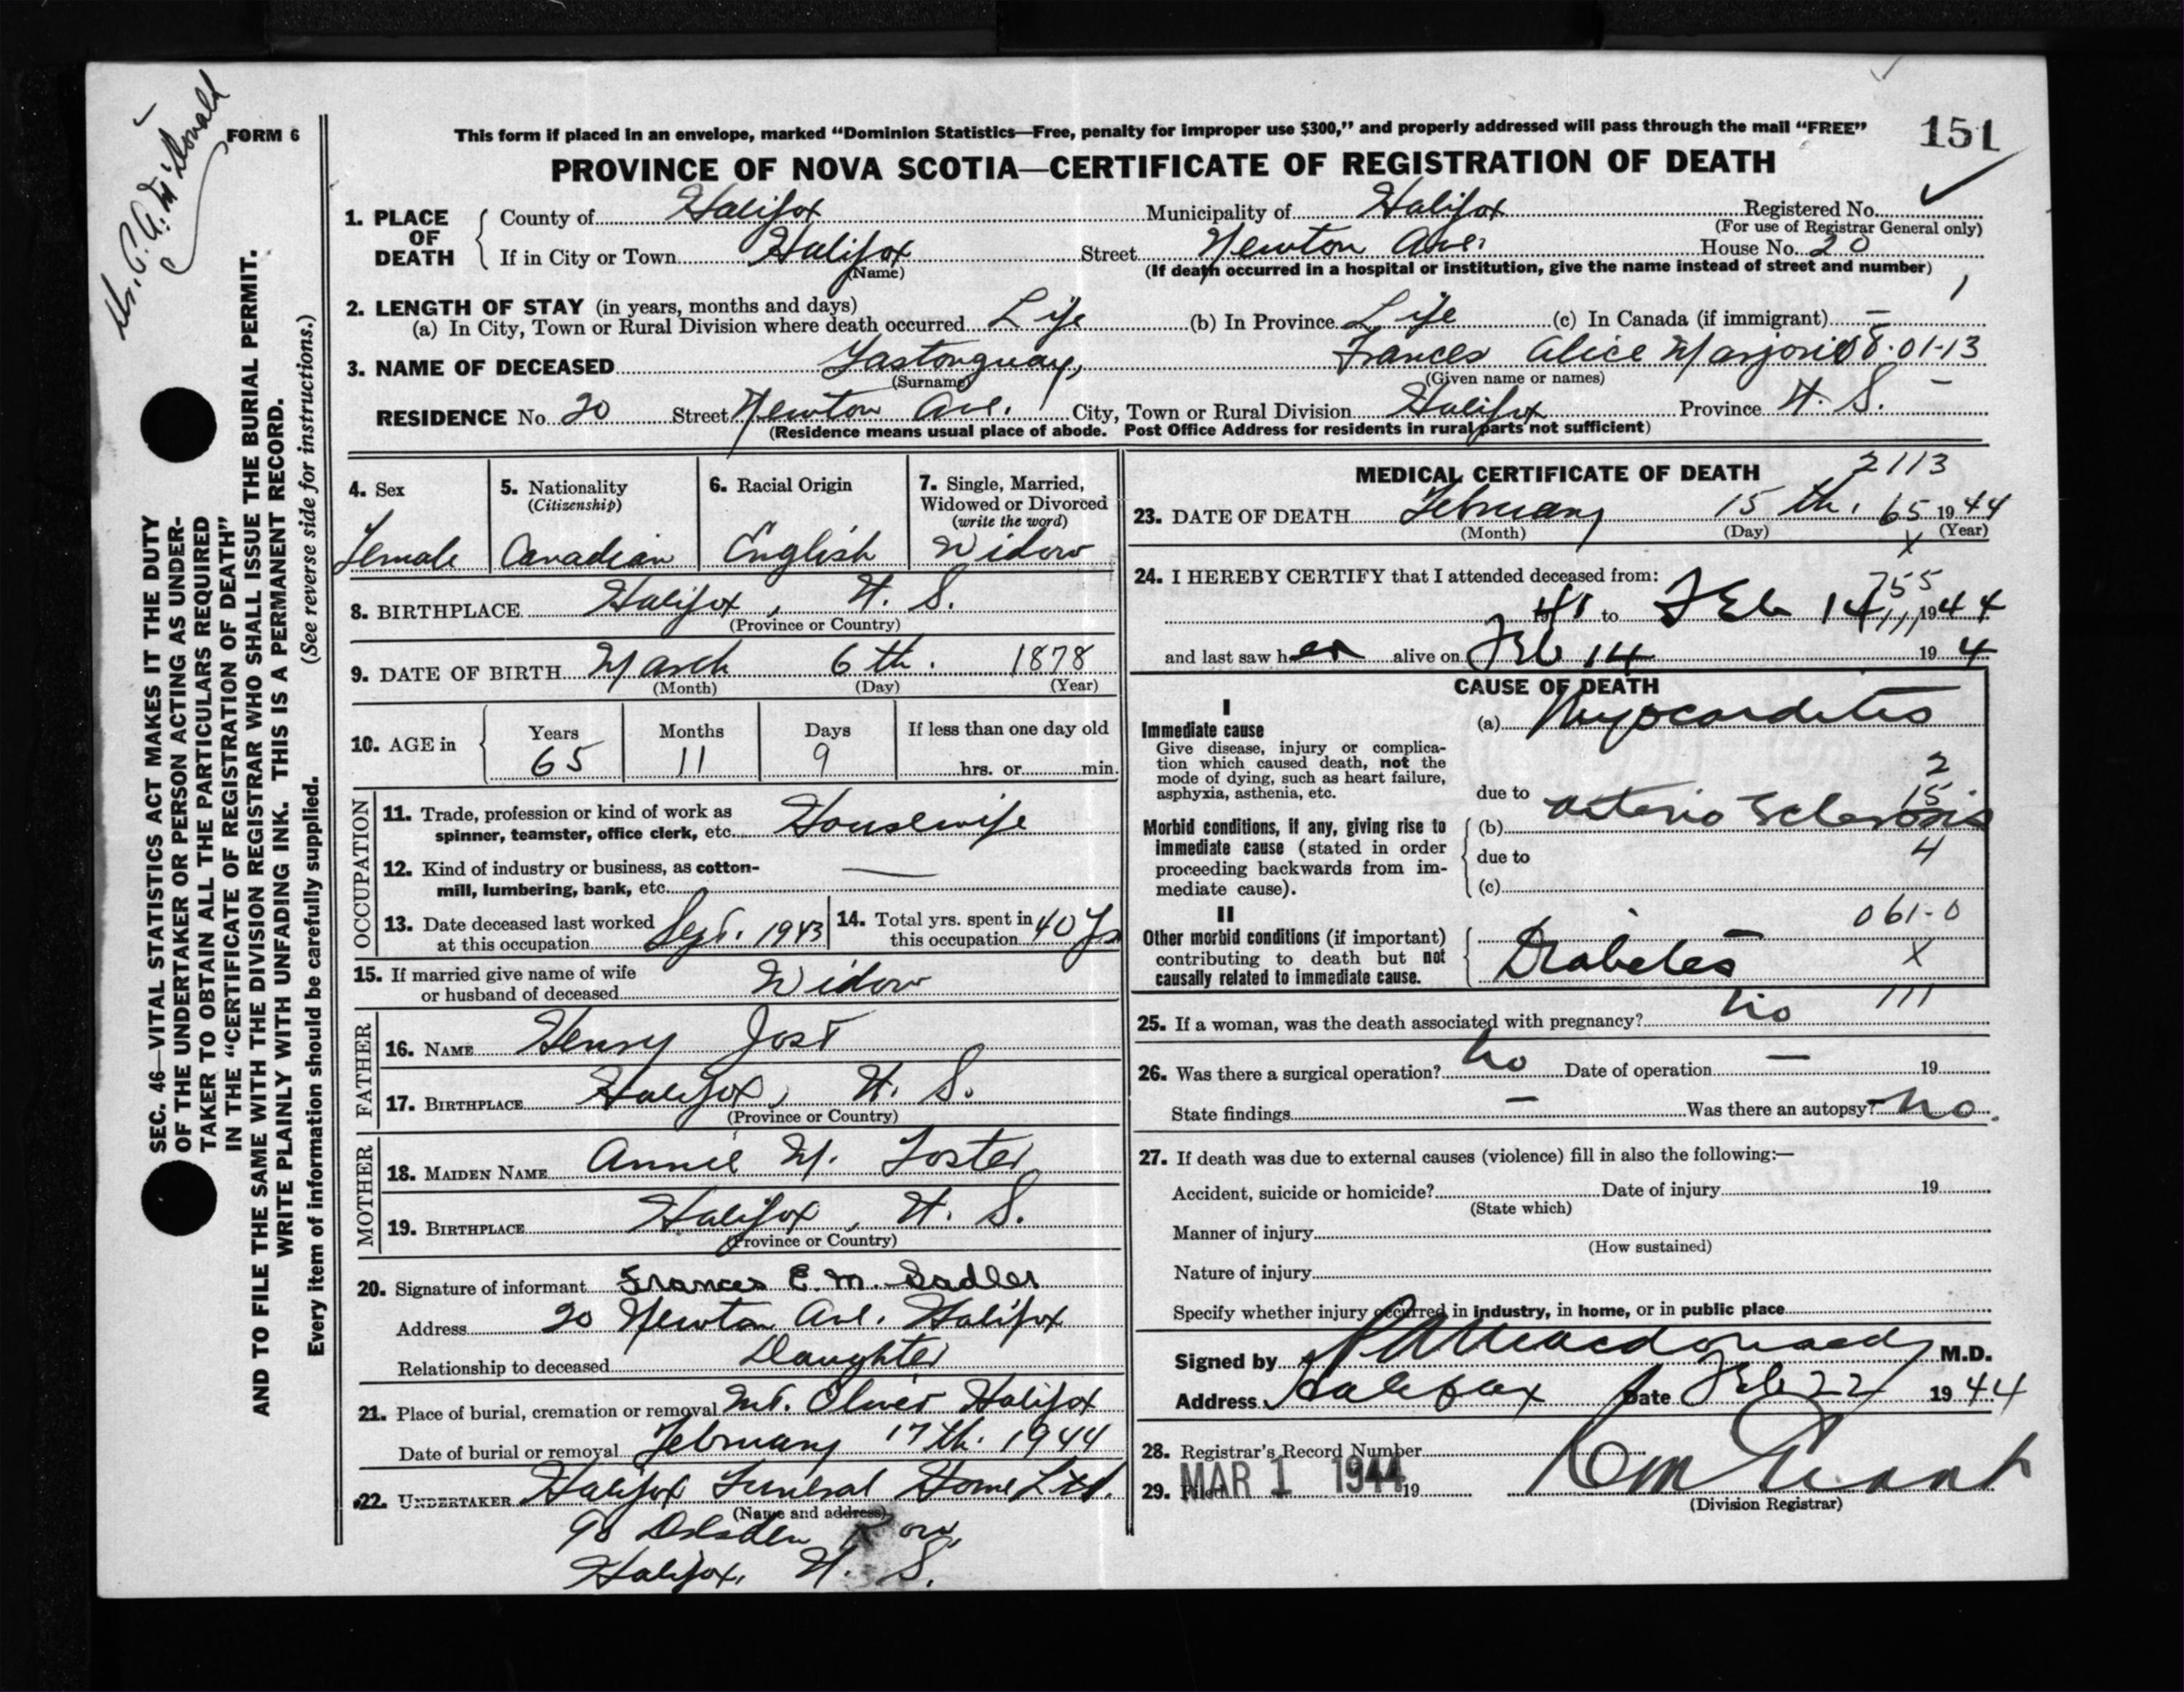 Dr. C. A. McDonald
FORM 6
This form if placed in an envelope, marked “Dominion Statistics—Free, penalty for improper use $300,” and properly addressed will pass through the mail “FREE”
151
PROVINCE OF NOVA SCOTIA—CERTIFICATE OF REGISTRATION OF DEATH
SEC. 46—VITAL STATISTICS ACT MAKES IT THE DUTY
OF THE UNDERTAKER OR PERSON ACTING AS UNDER-
TAKER TO OBTAIN ALL THE PARTICULARS REQUIRED
IN THE “CERTIFICATE OF REGISTRATION OF DEATH”
AND TO FILE THE SAME WITH THE DIVISION REGISTRAR WHO SHALL ISSUE THE BURIAL PERMIT.
WRITE PLAINLY WITH UNFADING INK. THIS IS A PERMANENT RECORD.
Every item of information should be carefully supplied. (See reverse side for instructions.)
1. PLACE OF DEATH County of Halifax Municipality of Halifax Registered No.
(For use of Registrar General only)
If in City or Town Halifax Street Newton Ave. House No. 20
(Name) (If death occurred in a hospital or institution, give the name instead of street and number)
2. LENGTH OF STAY (in years, months and days)
(a) In City, Town or Rural Division where death occurred Life (b) In Province Life (c) In Canada (if immigrant) —
3. NAME OF DECEASED Gastonguay, Frances Alice Marjorie 08-01-13
(Surname) (Given name or names)
RESIDENCE No. 20 Street Newton Ave. City, Town or Rural Division Halifax Province N. S. —
(Residence means usual place of abode. Post Office Address for residents in rural parts not sufficient)
4. Sex
Female
5. Nationality
(Citizenship)
Canadian
6. Racial Origin
English
7. Single, Married,
Widowed or Divorced
(write the word)
Widow
8. BIRTHPLACE Halifax, N. S.
(Province or Country)
9. DATE OF BIRTH March 6th. 1878
(Month) (Day) (Year)
10. AGE in Years Months Days If less than one day old
65 11 9 hrs. or min.
OCCUPATION
11. Trade, profession or kind of work as
spinner, teamster, office clerk, etc. Housewife
12. Kind of industry or business, as cotton-
mill, lumbering, bank, etc. —
13. Date deceased last worked
at this occupation Sept. 1943
14. Total yrs. spent in
this occupation 40 Yrs
15. If married give name of wife
or husband of deceased Widow
FATHER
16. NAME Henry Jost
17. BIRTHPLACE Halifax, N. S.
(Province or Country)
MOTHER
18. MAIDEN NAME Annie M. Foster
19. BIRTHPLACE Halifax, N. S.
(Province or Country)
20. Signature of informant Frances E. M. Sadler
Address 20 Newton Ave. Halifax
Relationship to deceased Daughter
21. Place of burial, cremation or removal Mt. Olivet Halifax
Date of burial or removal February 17th. 1944
22. UNDERTAKER Halifax Funeral Home Ltd.
(Name and address)
90 Dresden Row
Halifax, N. S.
MEDICAL CERTIFICATE OF DEATH
2113
23. DATE OF DEATH February 15th. 65 1944
(Month) (Day) (Year)
X
24. I HEREBY CERTIFY that I attended deceased from:
755
to Feb 14 111 1944
and last saw her alive on Feb 14 194
CAUSE OF DEATH
I
Immediate cause
Give disease, injury or complica-
tion which caused death, not the
mode of dying, such as heart failure,
asphyxia, asthenia, etc.
(a) Myocarditis
2
due to
15
Morbid conditions, if any, giving rise to
immediate cause (stated in order
proceeding backwards from im-
mediate cause).
(b) arterio sclerosis
due to
4
(c)
II
061-0
Other morbid conditions (if important)
contributing to death but not
causally related to immediate cause.
Diabetes
X
111
25. If a woman, was the death associated with pregnancy? no
26. Was there a surgical operation? no Date of operation — 19
State findings — Was there an autopsy? no.
27. If death was due to external causes (violence) fill in also the following:—
Accident, suicide or homicide? Date of injury 19
(State which)
Manner of injury
(How sustained)
Nature of injury
Specify whether injury occurred in industry, in home, or in public place
Signed by Macdonald M.D.
Address Halifax Date Feb 22 1944
28. Registrar's Record Number
29. Filed MAR 1 1944 19
Grant
(Division Registrar)